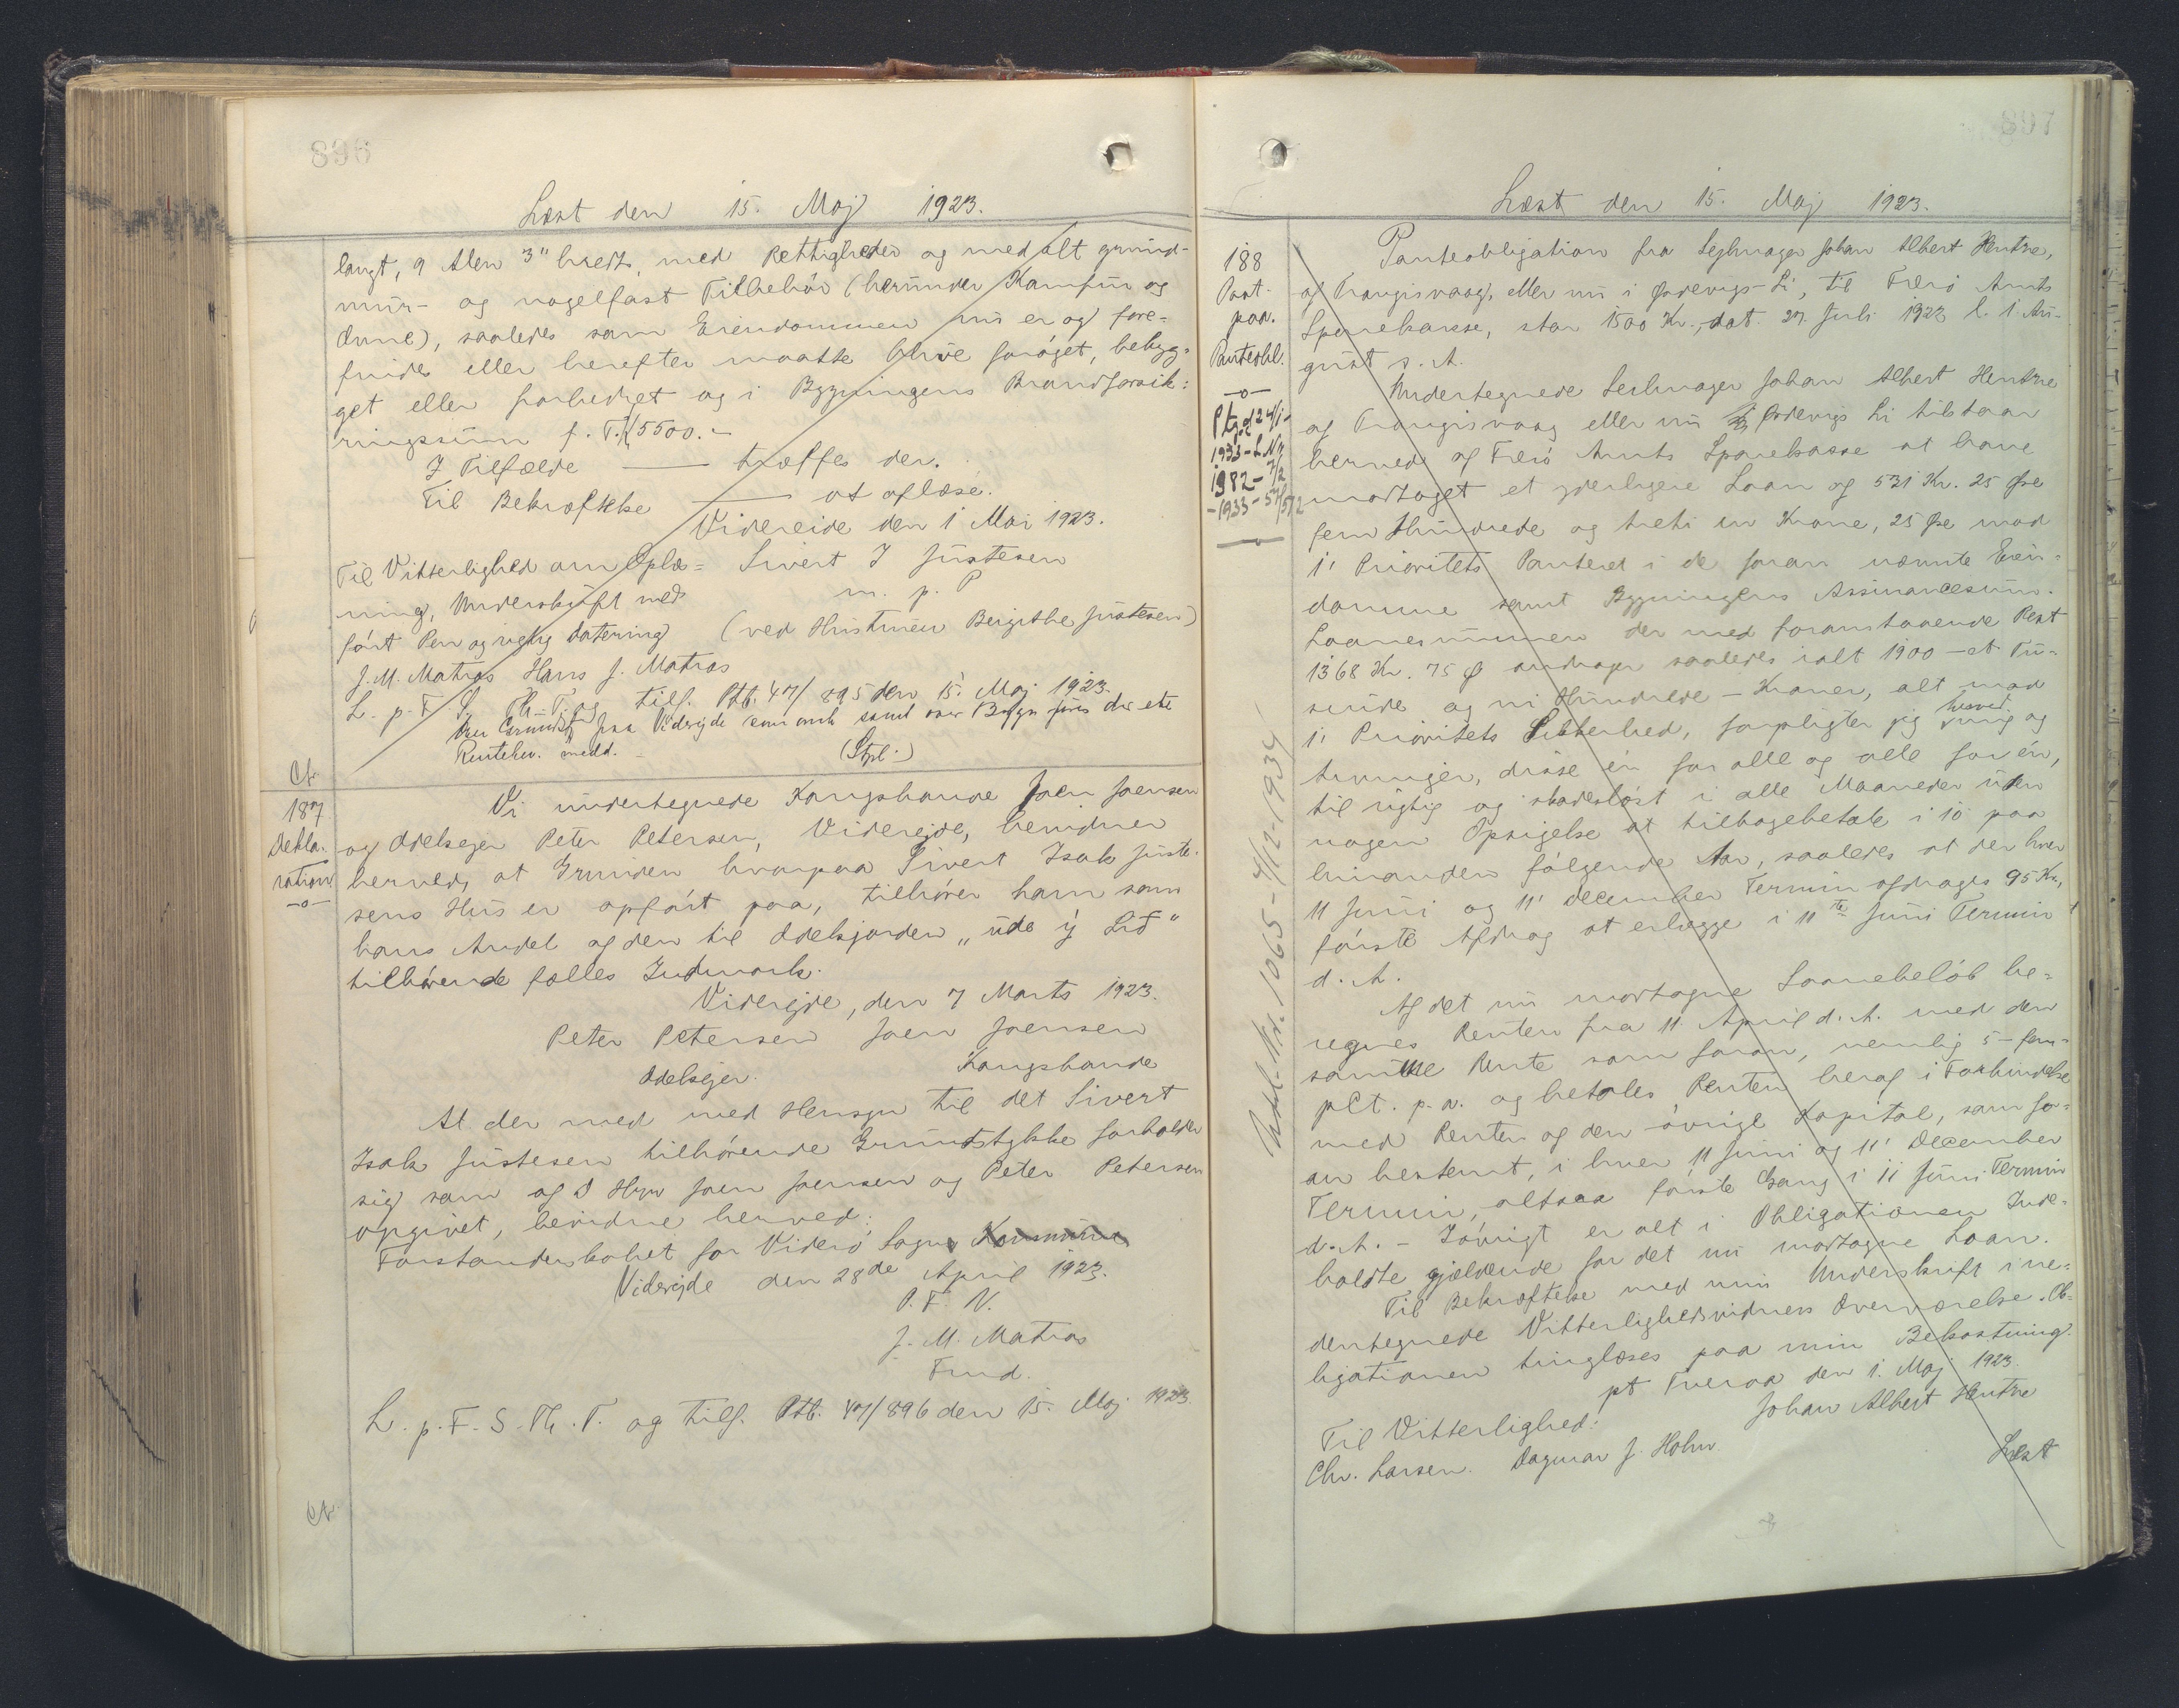 896
Læst den 15. Maj 1923.
langt, 9 Alen 3" bredt, med Rettigheder og med alt grund-
mur- og nagelfast Tilbehör (herunder Kamfur og
Ovne), saaledes som Eiendommen nu er og fore-
findes eller herefter maatte blive foröget, bebyg-
get eller forbedret og i Bygningens Brandforsik-
ringssum f. T. K 5500.-
I Tilfælde — træffes der.
Til Bekræftelse — at oplæse.
Videreide den 1 Mai 1923.
Til Vitterlighed om Oplæ= Sivert I Justesen
ning, Underskrift med m. p. P
fört Pen og rigtig Datering (ved Hustruen Beigithe Justesen)
J. M. Matras Hans J. Matras
L. p. F. S. Th. T. og tilf. Ptb. 47/895 den 15. Maj 1923.
Rentehu. medd. (Stpl.)
Ct.
187
Dekla-
ration
-o-
Vi undertegnede Kongsbonde Joen Joensen
og Odelsejer Peter Petersen, Viderejde, bevidner
herved, at Grunden hvorpaa Sivert Isak Juste-
sens Hus er opfört paa, tilhörer ham som
hans Andel af den til Odelsjorden „ude ý Lið"
tilhörende fælles Indmark.
Viderejde, den 7 Marts 1923.
Peter Petersen Joen Joensen
Odelsejer. Kongsbonde
At der med med Hensyn til det Sivert
Isak Justesen tilhörende Grundstykke forholder
sig som af D Hrr Joen Joensen og Peter Petersen
opgivet, bevidne herved:
Forstanderskabet for Viderö Sogns Kommune
Viderejde den 28de April 1923.
P. F. V.
J. M. Matras
Fmd.
L. p. F. S. Th. T. og tilf. Ptb. 47/896 den 15. Maj 1923.
Ct.
897
Læst den 15. Maj 1923.
188
Paat-
paa.
Panteobl.
-o-
1982-
Panteobligation fra Sejlmager Johan Albert Hentze,
af Trangisvaag, eller nu i Ørdevigs-Li, til Færö Amts
Sparekasse, stor 1500 Kr., dat. 27. Juli 1922 l. 1. Au-
gust s. A.
Undertegnede Seilmager Johan Albert Hentze
af Trangisvaag eller nu i Ørdevigs Li tilstaar
herved af Færö Amts Sparekasse at have
modtaget et yderligere Laan af 531 Kr. 25 Øre
fem Hundrede og treti en Krone, 25 Øre mod
1' Prioritets Panteret i de foran nævnte Eien-
domme samt Bygningens Assurancesum.
Laanesummen der med foranstaaende Rest
1368 Kr. 75 Ø andrager saaledes ialt 1900 - et Tu-
sinde og ni Hundrede - Kroner, alt mod
1' Prioritets Sikkerhed, forpligter jeg herved mig og
Arvinger, disse én for alle og alle for én,
til rigtig og skadeslöst i alle Maaneder uden
nogen Opsigelse at tilbagebetale i 10 paa
hinanden fölgende Aar, saaledes at der hver
11 Juni og 11' December Termin afdrages 95 Kr,
förste Afdrag at erlægge i 11te Juni Termin
d. A.
Af det nu modtagne Laanebelöb be-
regnes Renten fra 11. April d. A. med den
samme Rente som foran, nemlig 5 - fem -
pCt. p. a. og betales Renten heraf i Forbindelse
med Renten af den övrige Kapital, som for-
an bestemt, i hver 11 Juni og 11' December
Termin, altsaa förste Gang i 11 Juni Termin
d. A. - Iövrigt er alt i Obligationen Inde-
holdte gjældende for det nu modtagne Laan.
Til Bekræftelse med min Underskrift i ne-
dentegnede Vitterlighedsvidners Overværelse. Ob-
ligationen tinglæses paa min Bekostning.
pt Tveraa den 1. Maj 1923.
Til Vitterlighed: Johan Albert Hentze
Chr. Larsen. Dagmar J. Holm
Læst